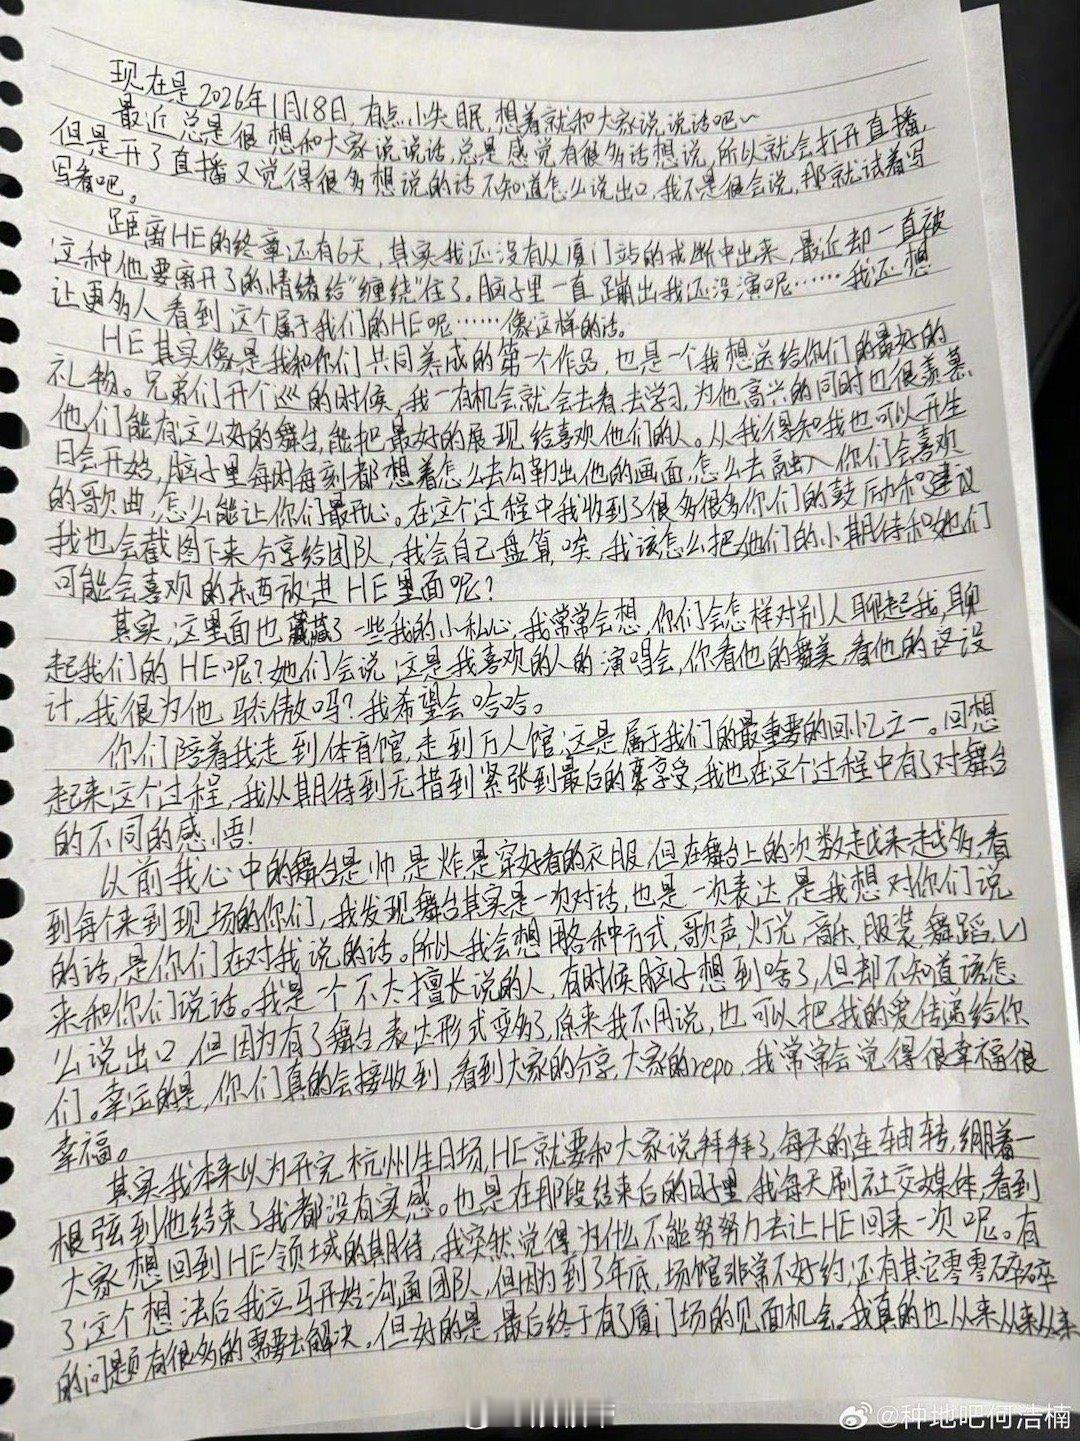 现在是2026年1月18日，有点小失眠，想着就和大家说说话吧~
最近总是很想和大家说说话，总是感觉有很多话想说，所以就会打开直播，
但是开了直播又觉得很多想说的话不知道怎么说出口，我不是很会说，那就试着写
写看吧。
距离HE的终章还有6天，其实我还没有从厦门站的戒断中出来，最近却一直被
这种他要离开了的情绪给“缠绕”住了。脑子里一直蹦出我还没演呢……我还想
让更多人看到这个属于我们的HE呢……像这样的话。
HE其实像是我和你们共同养成的第一个作品，也是一个我想送给你们的最好的
礼物。兄弟们开个巡的时候，我一有机会就会去看，去学习，为他高兴的同时也很羡慕，
他们能有这么好的舞台，能把最好的展现给喜欢他们的人。从我得知我也可以开生
日会开始，脑子里每时每刻都想着怎么去勾勒出他的画面，怎么去融入你们会喜欢
的歌曲，怎么能让你们最开心。在这个过程中我收到了很多很多你们的鼓励和建议
我也会截图下来分享给团队，我会自己盘算，唉，我该怎么把她们的小期待和她们
可能会喜欢的东西放进HE里面呢？
其实，这里面也藏了一些我的小私心，我常常会想，你们会怎样对别人聊起我，聊
起我们的HE呢？她们会说这是我喜欢的人的演唱会，你看他的舞美，看他的这设
计，我很为他骄傲吗？我希望会哈哈。
你们陪着我走到体育馆，走到万人馆，这是属于我们的最重要的回忆之一。回想
起来这个过程，我从期待到无措到紧张到最后的享受，我也在这个过程中有了对舞台
的不同的感悟！
以前我心中的舞台是帅是炸是穿好看的衣服，但在舞台上的次数越来越多，看
到每个来到现场的你们，我发现舞台其实是一次对话，也是一次表达，是我想对你们说
的话，是你们在对我说的话。所以我会想用各种方式，歌声，灯光，音乐，服装，舞蹈，VJ
来和你们说话。我是一个不太擅长说的人，有时候脑子想到啥了，但却不知道该怎
么说出口，但因为有了舞台，表达形式变多了，原来我不用说，也可以把我的爱传递给你
们。幸运的是，你们真的会接收到，看到大家的分享，大家的repo，我常常会觉得很幸福很
幸福。
其实我本来以为开完杭州生日场，HE就要和大家说拜拜了，每天的连轴转，绷着一
根弦到他结束了我都没有实感。也是在那段结束后的日子里，我每天刷社交媒体，看到
大家想回到HE领域的期待，我突然觉得为什么不能努努力去让HE回来一次呢。有
了这个想法后我立马开始沟通团队，但因为到了年底，场馆非常不好约，还有其它零零碎碎
的问题有很多的需要去解决，但好的是，最后终于有了厦门场的见面机会。我真的也从来从来从来
@种地吧何浩楠